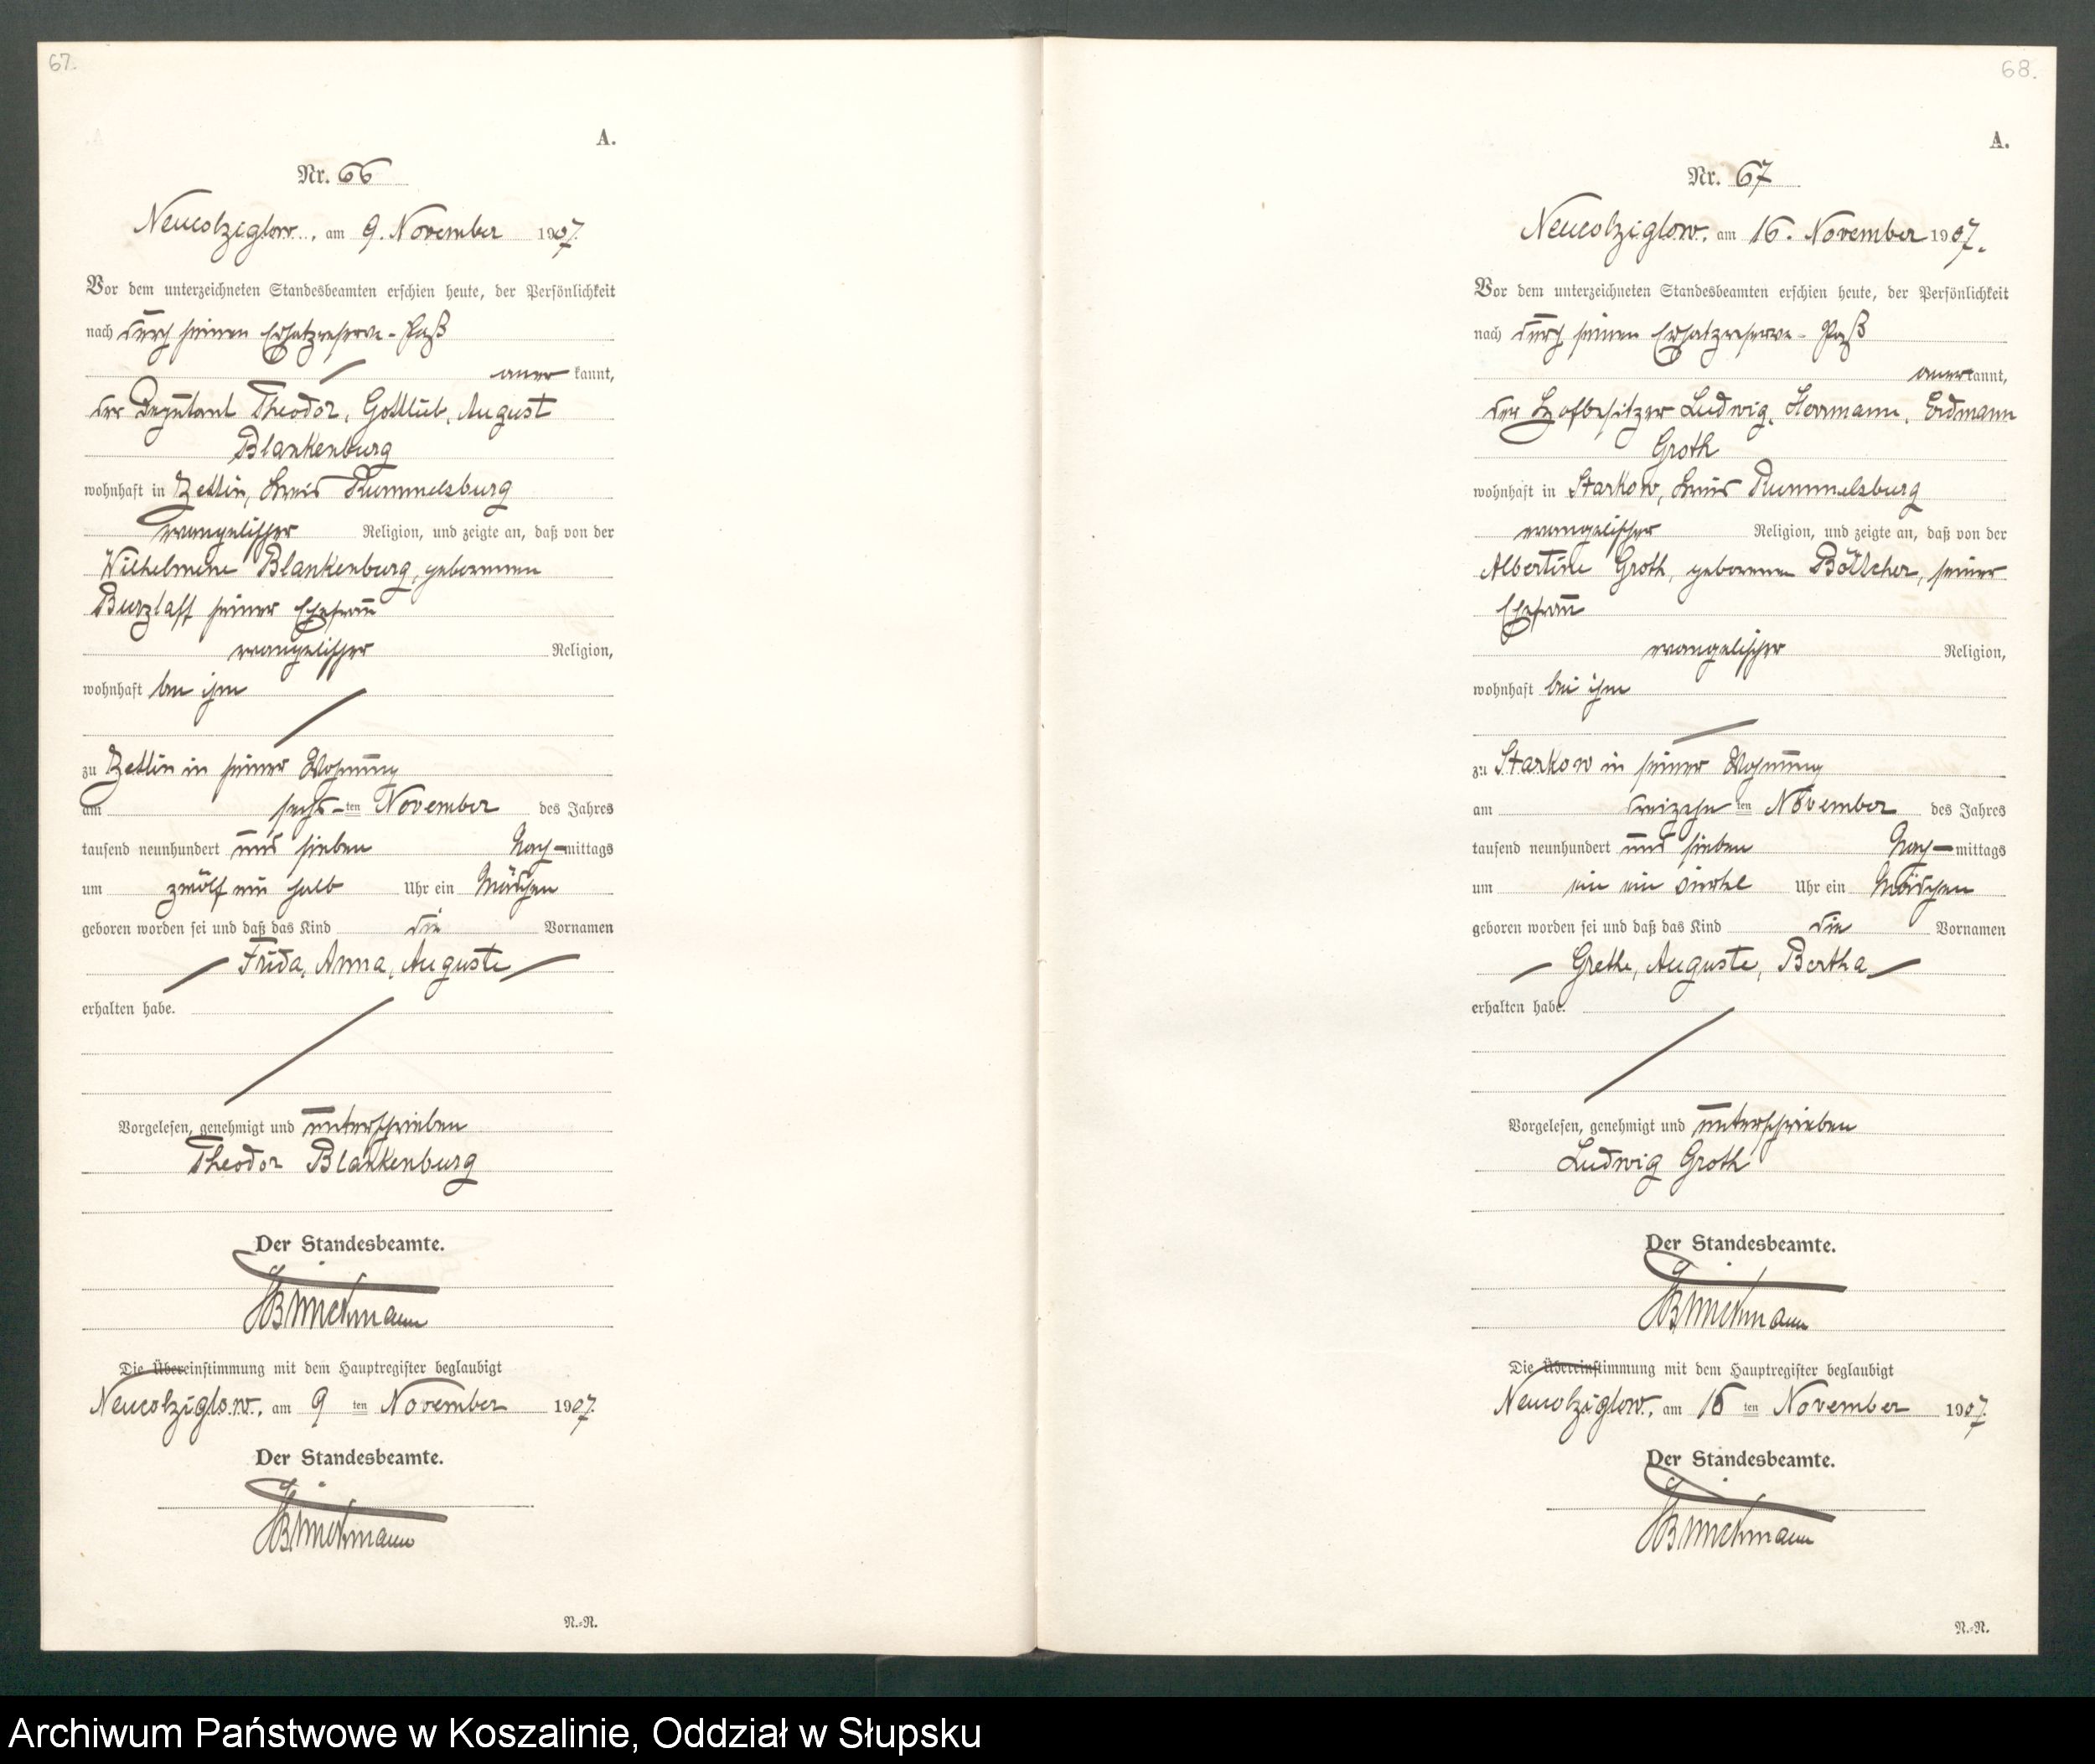 67.
A.
Nr. 66
Neukolziglow, am 9. November 1907.
Vor dem unterzeichneten Standesbeamten erschien heute, der Persönlichkeit
nach durch seinen Ersatzreserve-Paß
anerkannt,
der Deputant Theodor, Gottlieb, August
Blankenburg
wohnhaft in Zettin, Kreis Rummelsburg
evangelischer Religion, und zeigte an, daß von der
Wilhelmine Blankenburg, geborenen
Burzlaff seiner Ehefrau
evangelischer Religion,
wohnhaft bei ihm
zu Zettin in seiner Wohnung
am sechs-ten November des Jahres
tausend neunhundert und sieben Nach-mittags
um zwölf ein halb Uhr ein Mädchen
geboren worden sei und daß das Kind die Vornamen
Frida, Anna, Auguste
erhalten habe.
Vorgelesen, genehmigt und unterschrieben
Theodor Blankenburg
Der Standesbeamte.
Die Übereinstimmung mit dem Hauptregister beglaubigt
Neukolziglow, am 9 ten November 1907.
Der Standesbeamte.
N.-N.
68.
A.
Nr. 67
Neukolziglow, am 16. November 1907.
Vor dem unterzeichneten Standesbeamten erschien heute, der Persönlichkeit
nach durch seinen Ersatzreserve-Paß
anerkannt,
der Hofbesitzer Ludwig, Herrmann, Erdmann
Groth
wohnhaft in Starkow, Kreis Rummelsburg
evangelischer Religion, und zeigte an, daß von der
Albertine Groth, geborenen Böttcher, seiner
Ehefrau
evangelischer Religion,
wohnhaft bei ihm
zu Starkow in seiner Wohnung
am dreizehnten November des Jahres
tausend neunhundert und sieben Nach-mittags
um ein ein viertel Uhr ein Mädchen
geboren worden sei und daß das Kind die Vornamen
Grethe, Auguste, Bertha
erhalten habe.
Vorgelesen, genehmigt und unterschrieben
Ludwig Groth
Der Standesbeamte.
Die Übereinstimmung mit dem Hauptregister beglaubigt
Neukolziglow, am 16 ten November 1907.
Der Standesbeamte.
N.-N.
Archiwum Państwowe w Koszalinie, Oddział w Słupsku